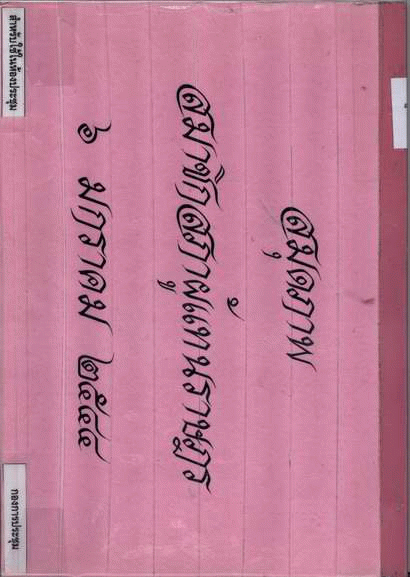 สมุดภาพ
สมาชิกสภาผู้แทนราษฎร
๖ มกราคม ๒๕๔๔
สำหรับใช้ในห้องประชุม
กองการประชุม